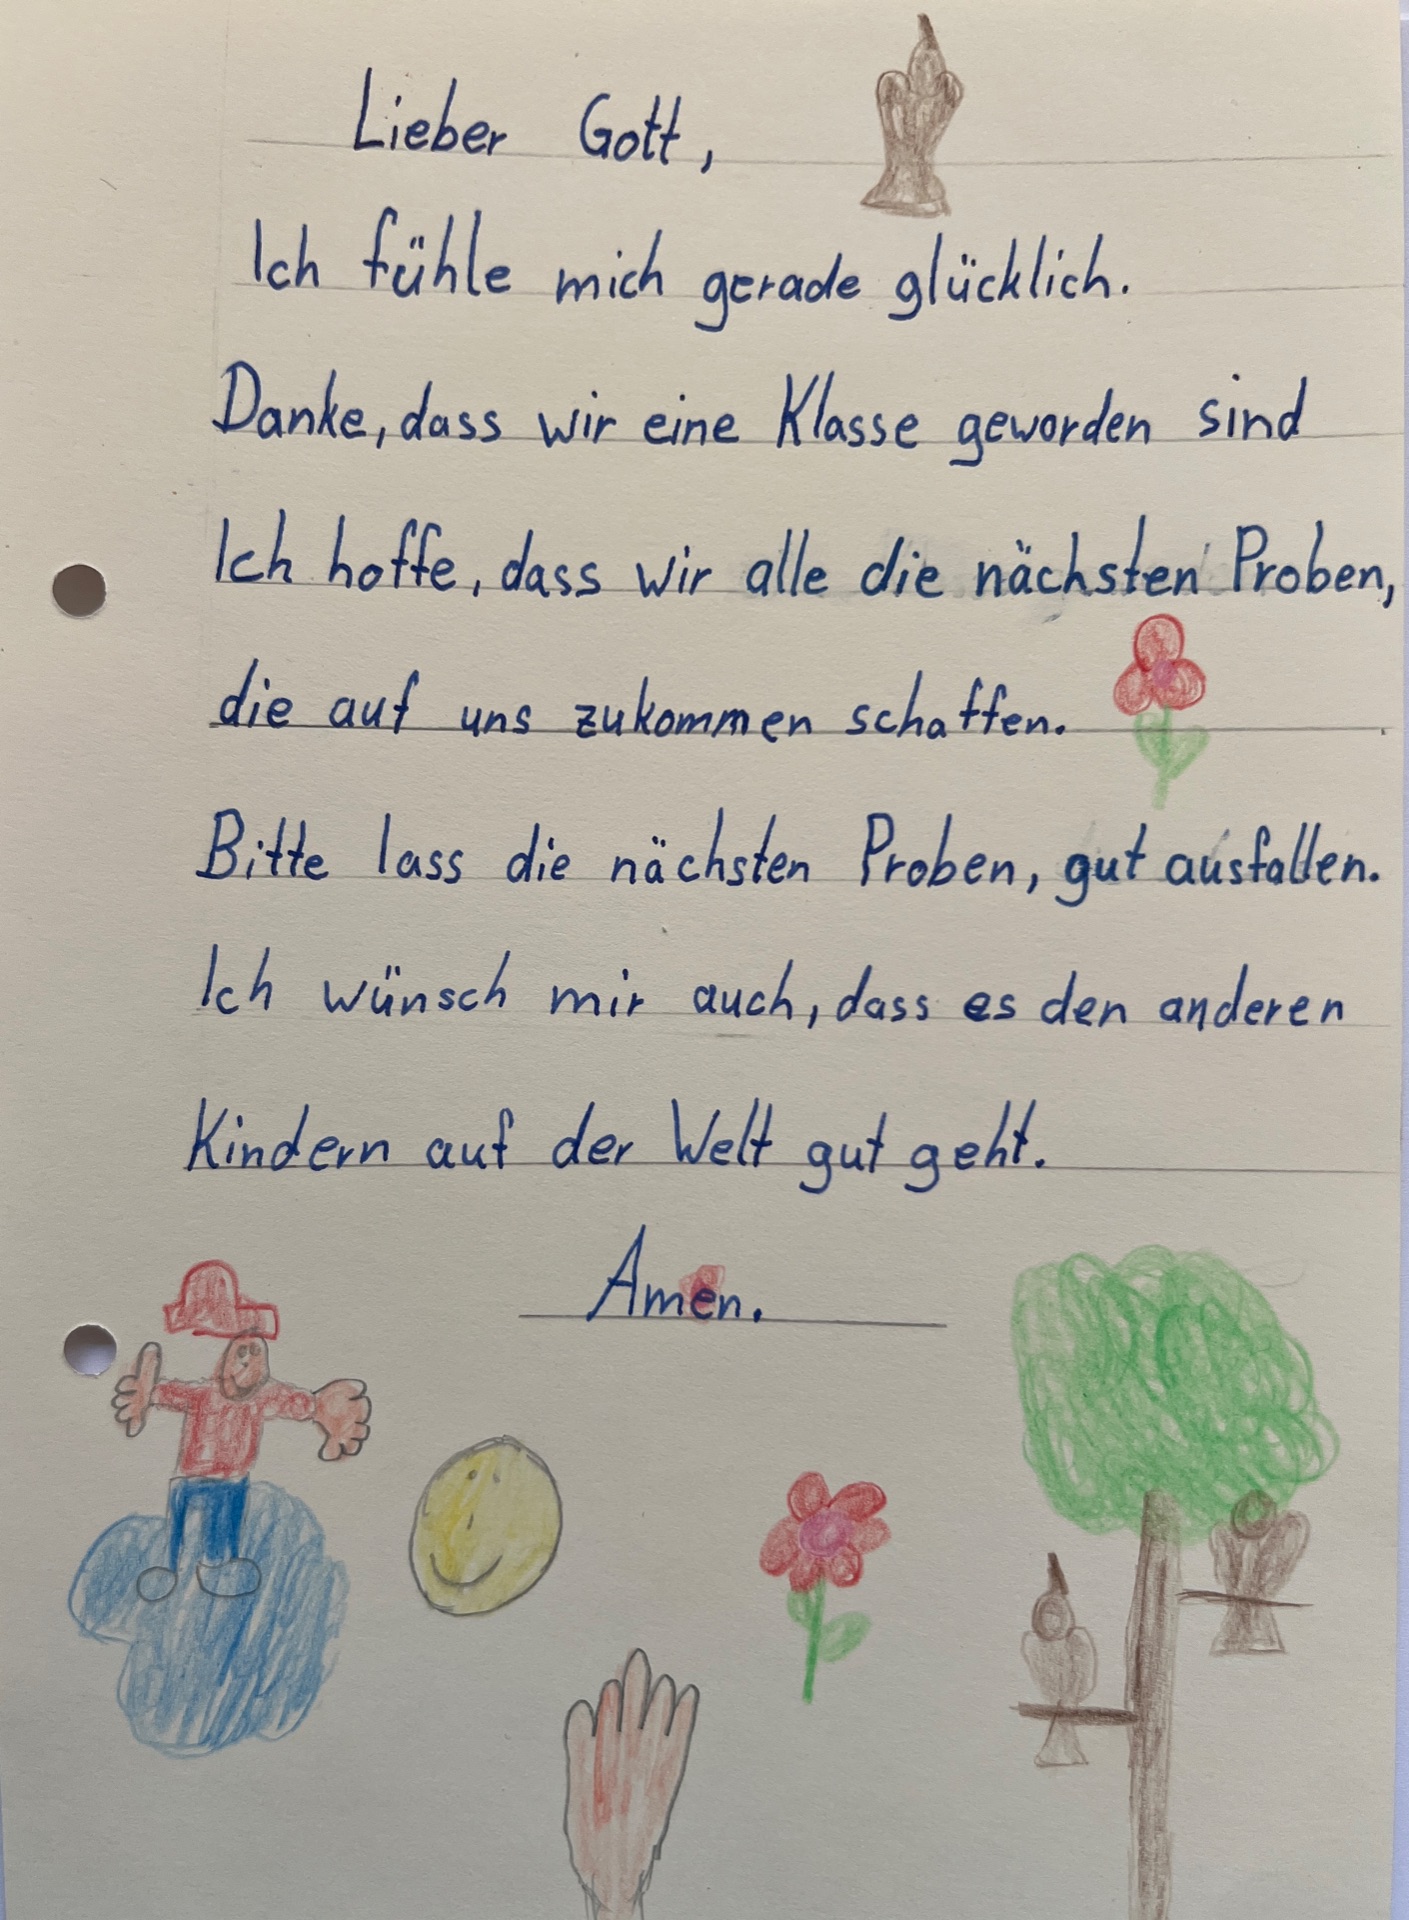 Lieber Gott,
Ich fühle mich gerade glücklich.
Danke, dass wir eine Klasse geworden sind
Ich hoffe, dass wir alle die nächsten Proben,
die auf uns zukommen schaffen.
Bitte lass die nächsten Proben, gut ausfallen.
Ich wünsch mir auch, dass es den anderen
Kindern auf der Welt gut geht.
Amen.